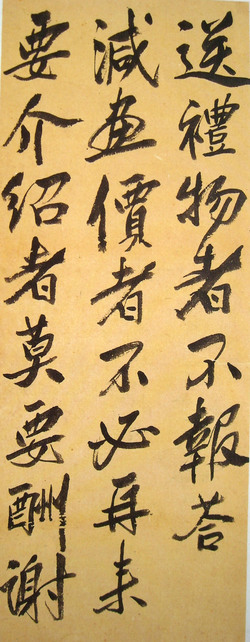 送禮物者不報荅
減画價者不必再来
要介紹者莫要酬谢